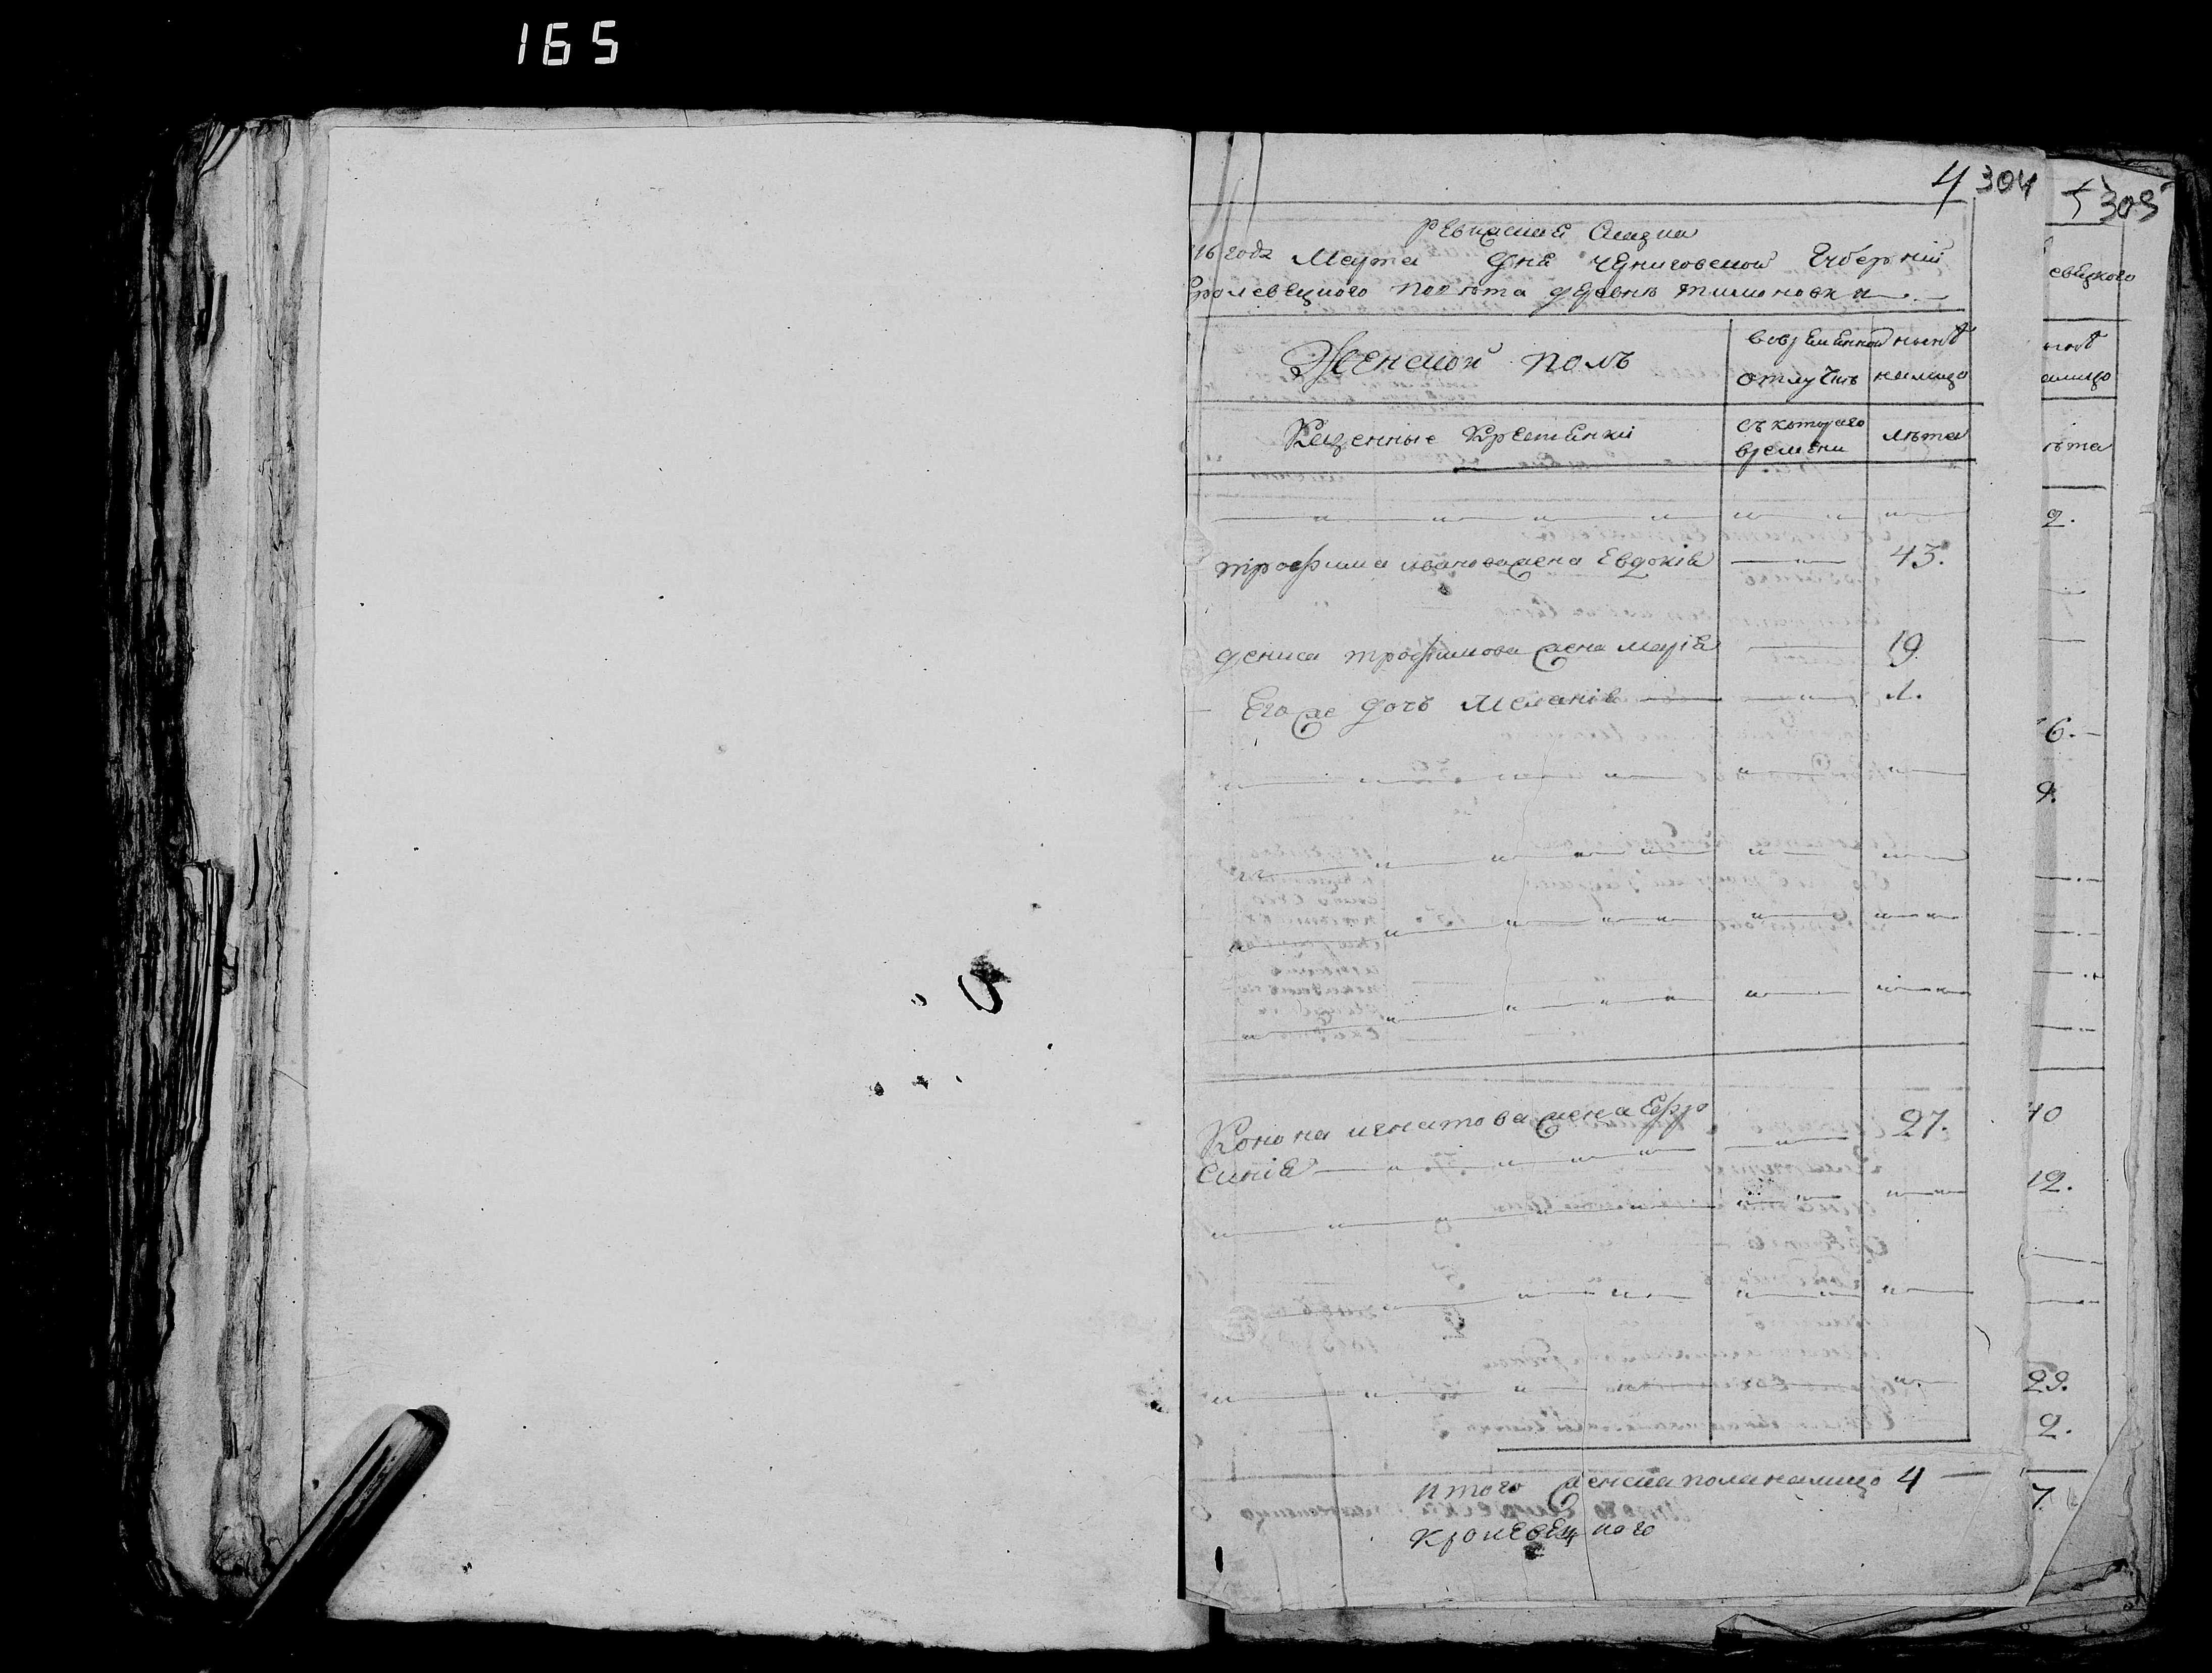 165
4 304
5 305
Ревизская Сказка
16 года Марта дня Черниговской Губернии
кролевецкого повета деревне тимоновки
евецкого
Женской полъ
вовременной отлучке
ныне налицо
Казенные Крестянки
съ которого времени
лета
Трофима иванова жена Евдокия 43.
дениса трофимова жена Мария 19
Его же дочь Мелания 1.
Конона игнатова жена Ефро
синия 27.
итого женска пола налицо 4
кролевецкого
2.
6.
9.
40
12.
29.
2.
7.